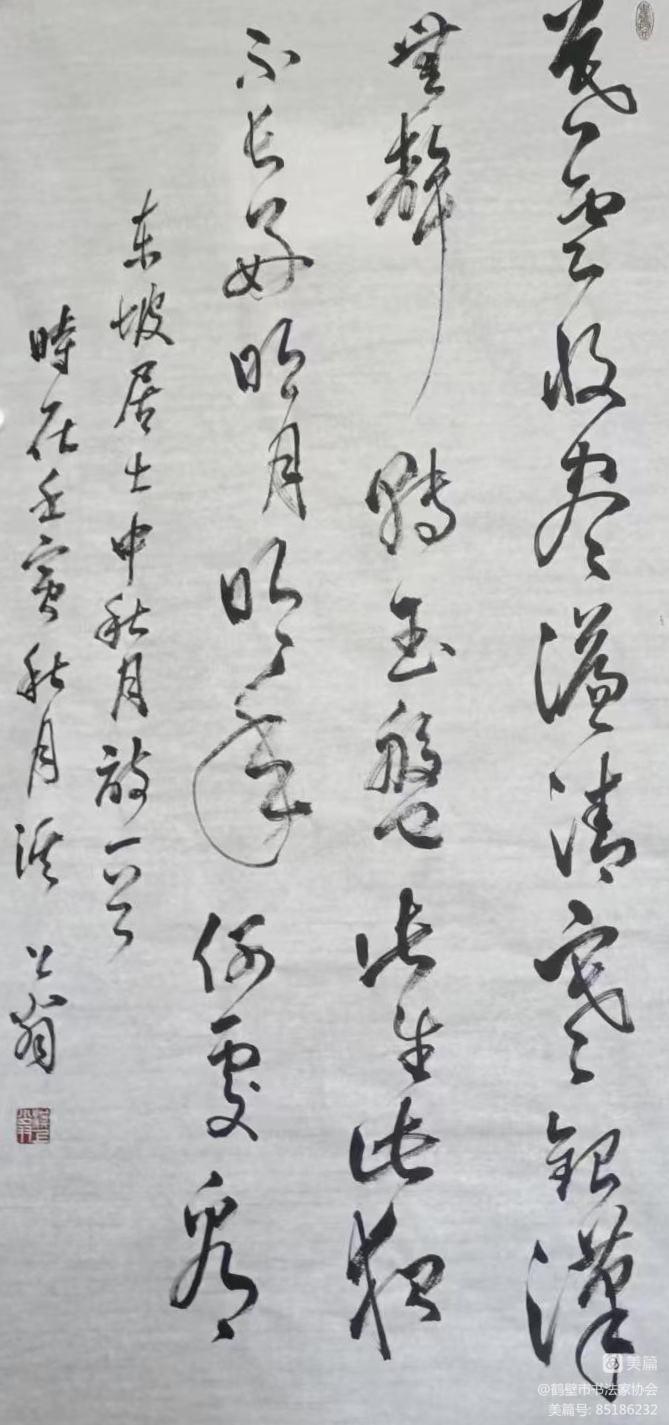 暮雲收盡溢清寒銀漢
無聲轉玉盤此生此夜
不长好明月明年何處看
东坡居士中秋月诗一首
時在壬寅秋月溪公翁
美篇
@鹤壁市书法家协会
美篇号: 85186232